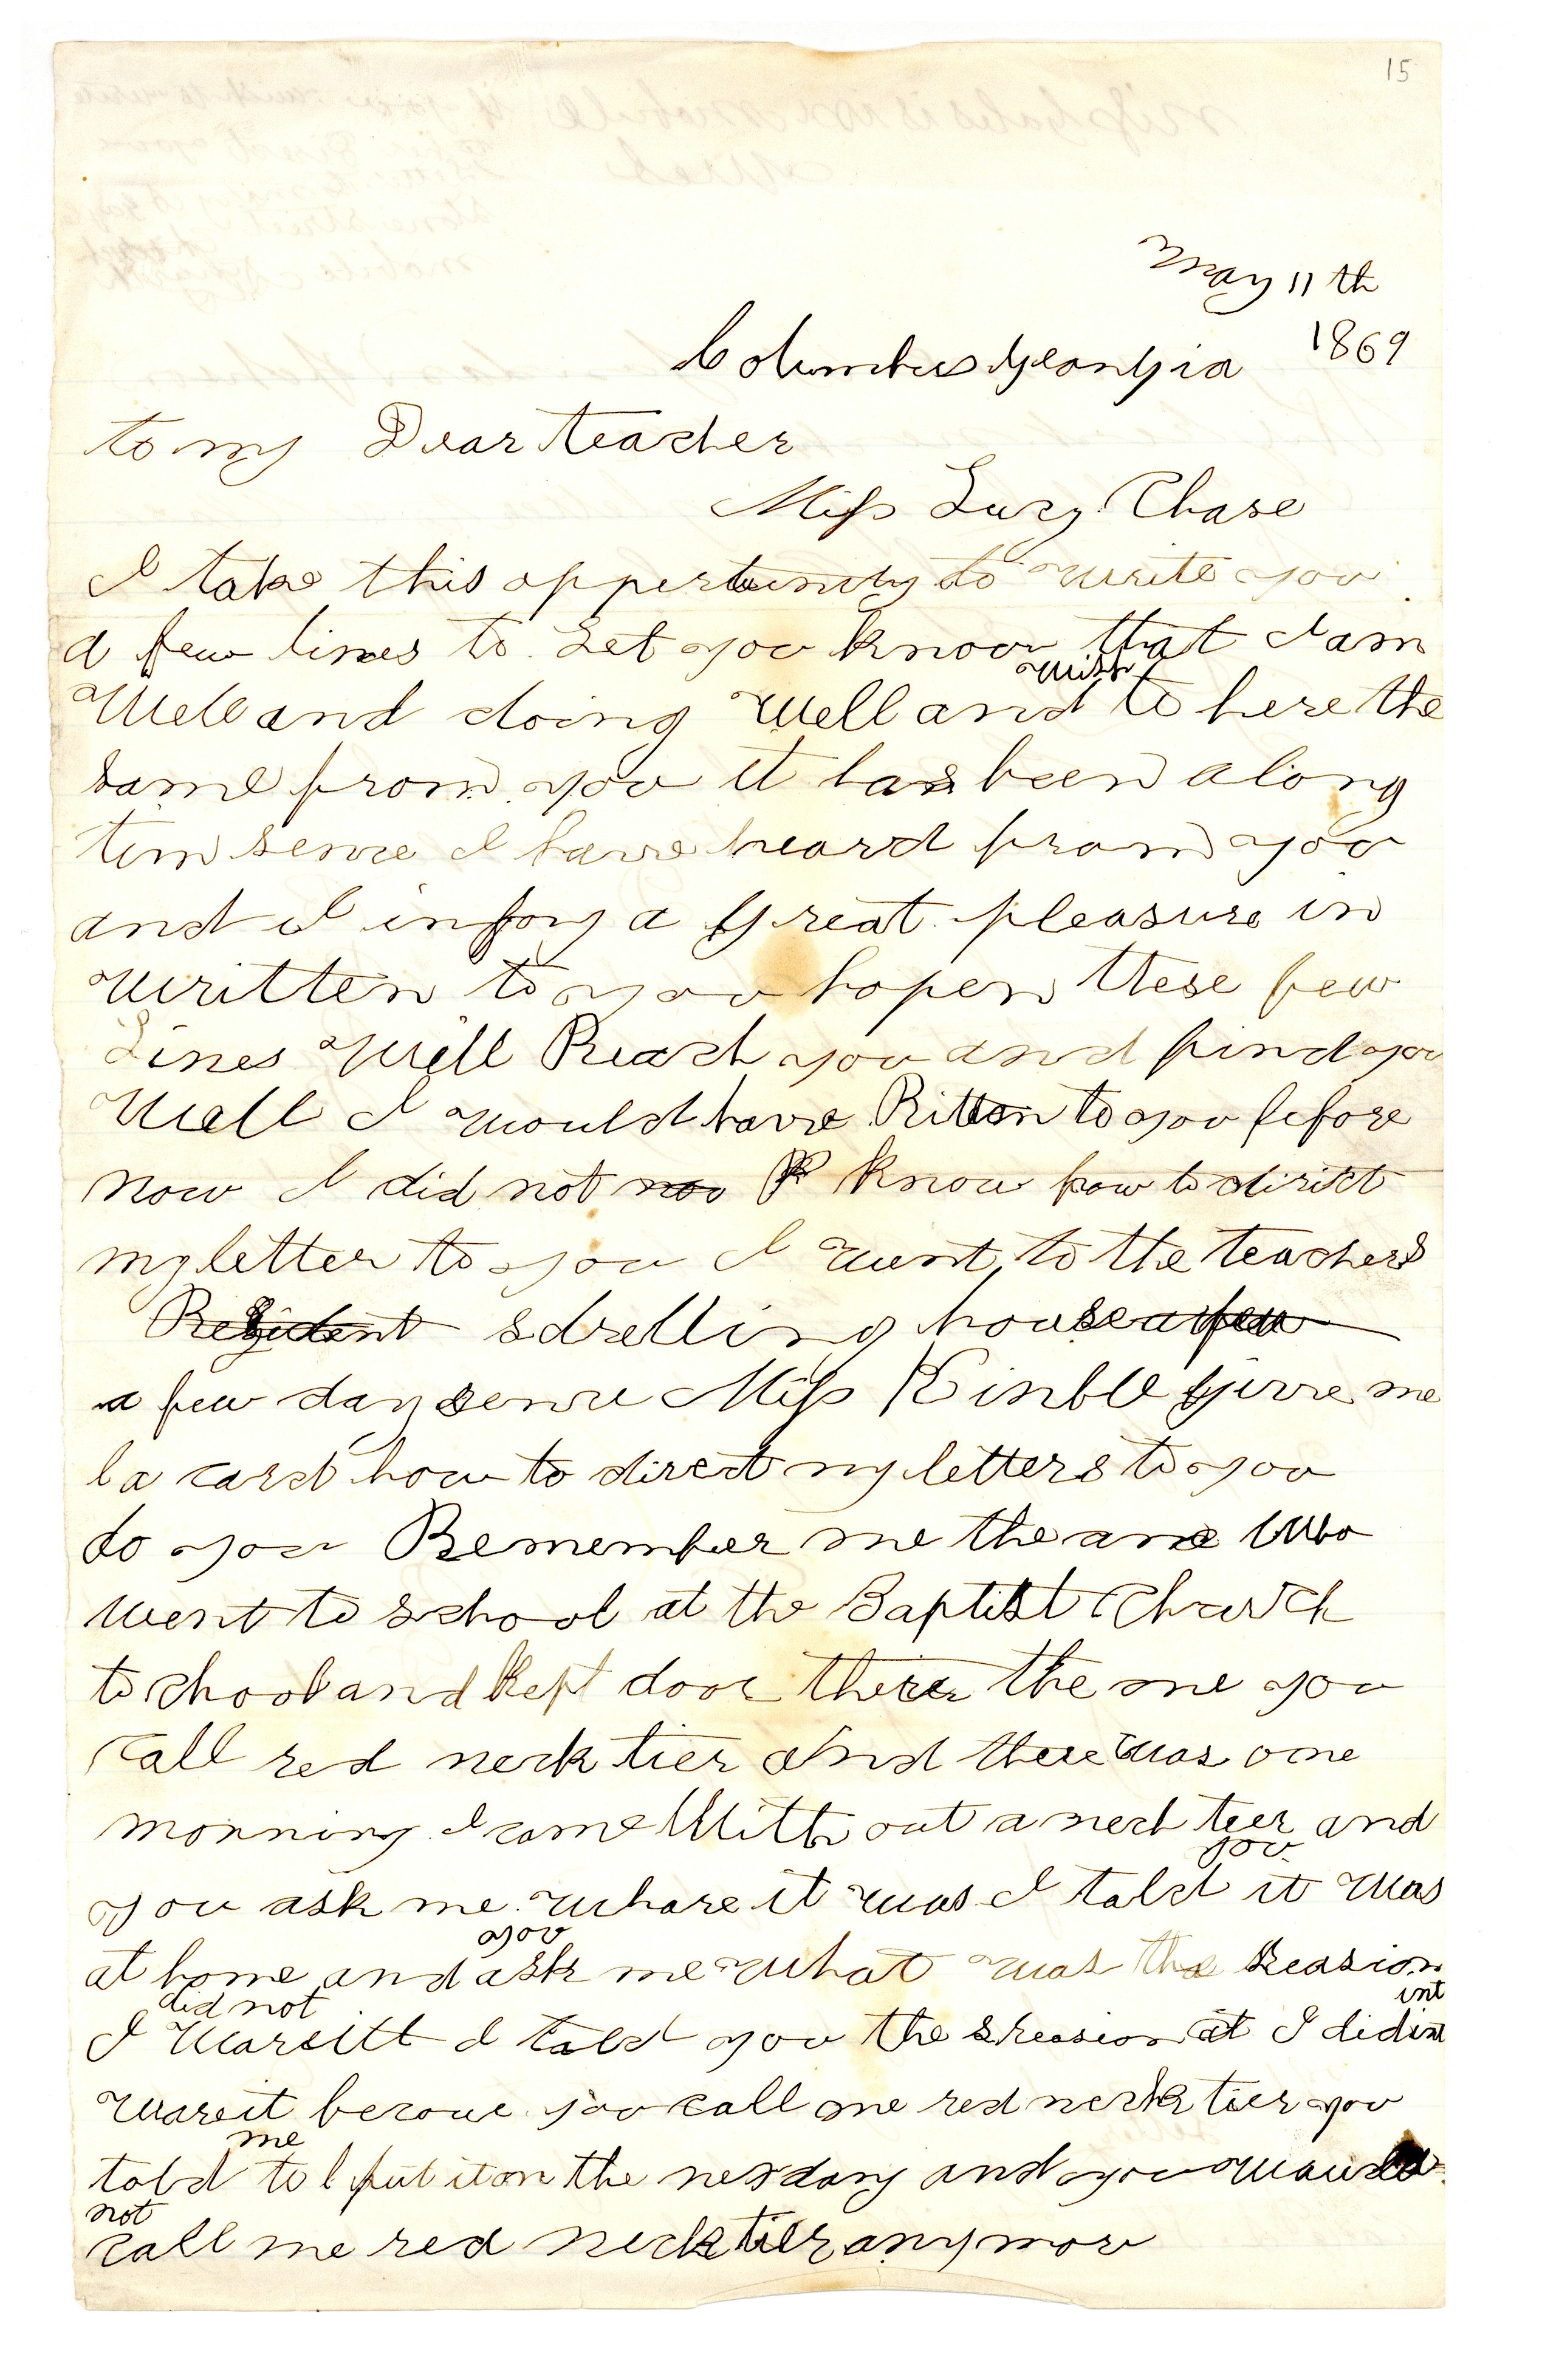 15
May 11th
Columbus Georgia 1869
to my Dear teacher
Miss Lucy Chase
I take this oppertunity to write you
a few lines to Let you know that I am
Well and doing well and wish to here the
same from you it has been a long
tim sence I have heard from you
and I injoy a Great pleasure in
written to you hopen these few
Lines Will Reach you and find you
Well I would have Ritten to you before
now I did not know how to dirict
my letter to you I went to the teachers
Resident dwelling house a few
a few day sence Miss Kinble give me
a card how to direct my letters to you
do you Remember me the one Who
went to school at the Baptist Church
to chool and kept door there the one you
call red neck tier And there was one
morning I come With out a neck teer and
you ask me whare it was I told you it was
at home and you ask me what was the Reasion
I did not ware itt I told you the reasion at I didint
ware it becoue you call me red neck tier you
told me to put it on the nex day and you would
not call me red neck tier any mor